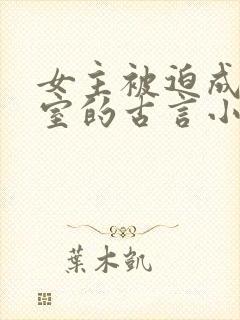 女主被迫成
室的古言小
葉木凱